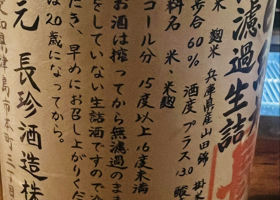 無濾過生詰
麹米 兵庫県産山田錦 掛米
歩合 60% 酒度プラス 130 醸
料名 米、米麹
コール分 15度以上16度未満
お酒は搾ってから無濾過のまま
をしていない生詰酒ですので冷
だき、早めにお召し上がりくだ
は20歳になってから。
元 長珍酒造株
知県津島市本町三丁目